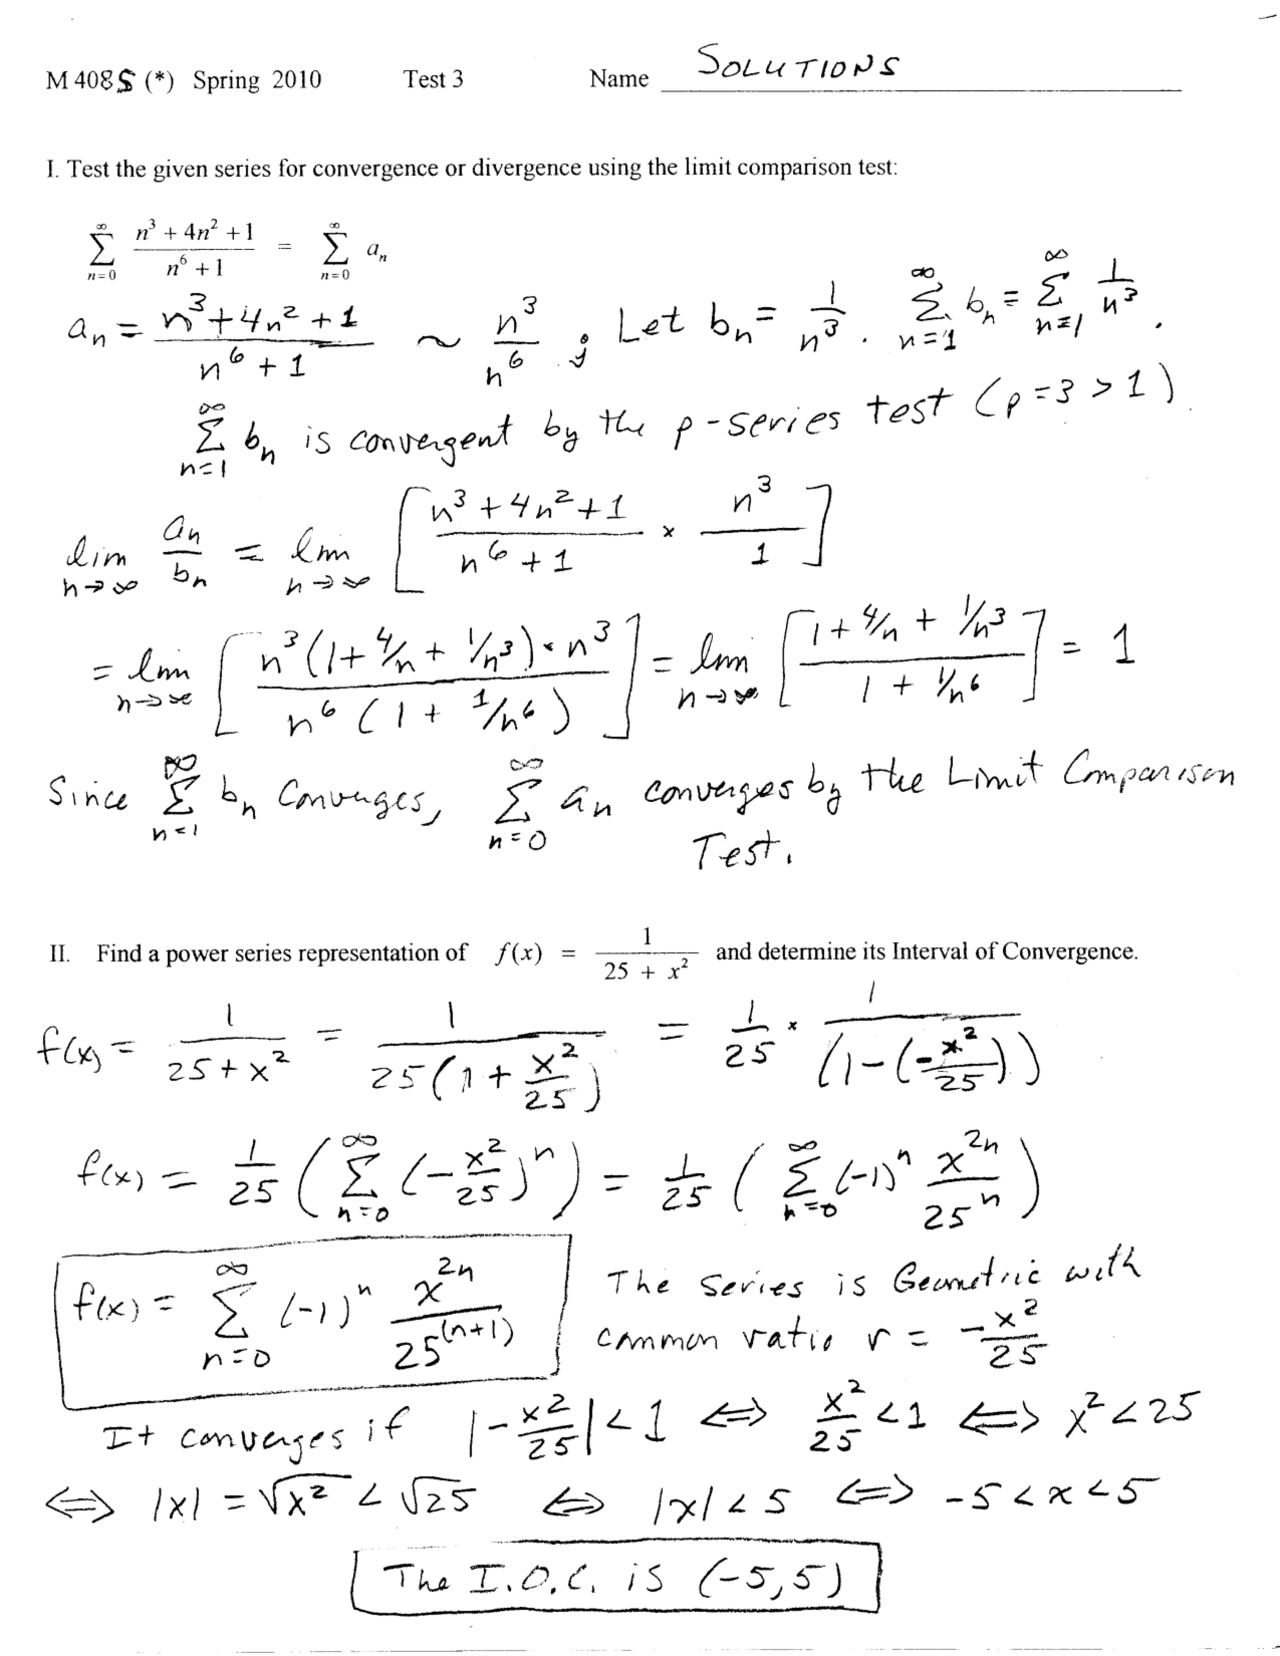 M 408S (*) Spring 2010 Test 3 Name SOLUTIONS
I. Test the given series for convergence or divergence using the limit comparison test:
∑_{n=0}^{∞} (n³ + 4n² + 1)/(n⁶ + 1) = ∑_{n=0}^{∞} aₙ
aₙ = (n³+4n²+1)/(n⁶+1) ~ n³/n⁶ ; Let bₙ = 1/n³. ∑_{n=1}^{∞} bₙ = ∑_{n=1}^{∞} 1/n³.
∑_{n=1}^{∞} bₙ is convergent by the p-series test (p=3>1).
lim_{n→∞} aₙ/bₙ = lim_{n→∞} [(n³+4n²+1)/(n⁶+1) × n³/1]
= lim_{n→∞} [n³(1+4/n+1/n³)·n³ / n⁶(1+1/n⁶)] = lim_{n→∞} [(1+4/n+1/n³)/(1+1/n⁶)] = 1
Since ∑_{n=1}^{∞} bₙ Converges, ∑_{n=0}^{∞} aₙ converges by the Limit Comparison
Test.
II. Find a power series representation of f(x) = 1/(25 + x²) and determine its Interval of Convergence.
f(x) = 1/(25+x²) = 1/(25(1+x²/25)) = 1/25 × 1/(1-(-x²/25))
f(x) = 1/25 (∑_{n=0}^{∞} (-x²/25)ⁿ) = 1/25 (∑_{n=0}^{∞} (-1)ⁿ x²ⁿ/25ⁿ)
f(x) = ∑_{n=0}^{∞} (-1)ⁿ x²ⁿ/25⁽ⁿ⁺¹⁾
The series is Geometric with
common ratio r = -x²/25
It converges if |-x²/25| < 1 ⟺ x²/25 < 1 ⟺ x² < 25
⟺ |x| = √x² < √25 ⟺ |x| < 5 ⟺ -5 < x < 5
The I.O.C. is (-5,5)